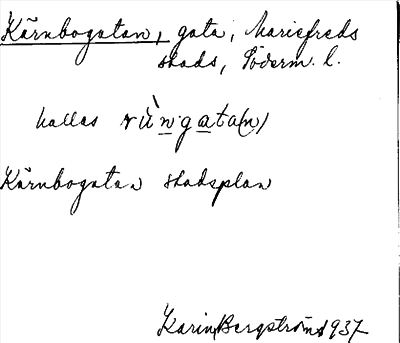 Kärnbogatan, gata, Mariefreds
stads, Söderm. l.
kallas rùngata(n)
Kärnbogatan stadsplan
Karin Bergström 1937